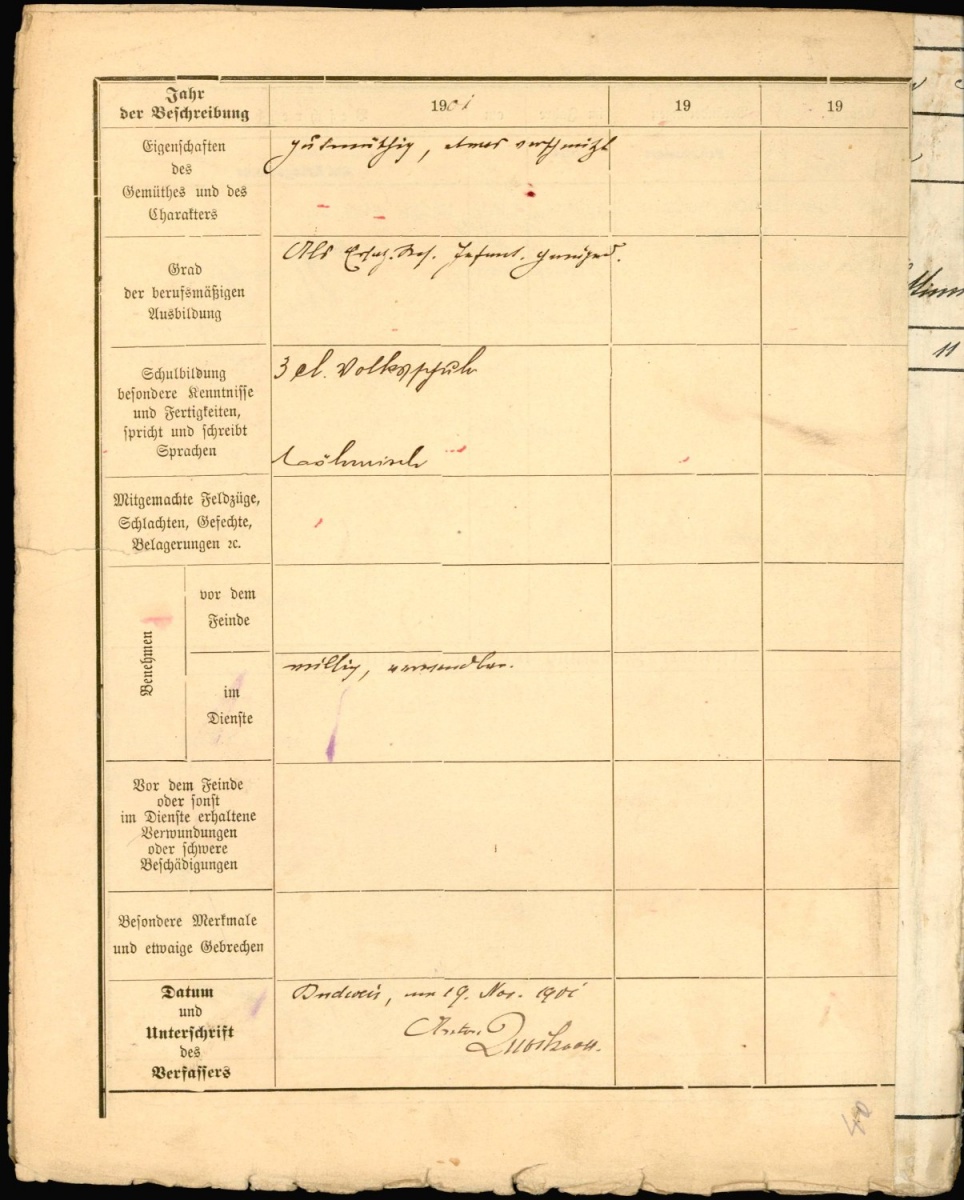 Jahr
der Beschreibung
1901
19
19
Eigenschaften
des
Gemüthes und des
Charakters
gutmüthig, etwas verschmitzt
Grad
der berufsmäßigen
Ausbildung
Als Ersatz-Res. Infant.
Schulbildung
besondere Kenntnisse
und Fertigkeiten,
spricht und schreibt
Sprachen
3 cl. Volksschule
böhmisch
Mitgemachte Feldzüge,
Schlachten, Gefechte,
Belagerungen ꝛc.
Benehmen
vor dem
Feinde
im
Dienste
willig, verwendbar.
Vor dem Feinde
oder sonst
im Dienste erhaltene
Verwundungen
oder schwere
Beschädigungen
Besondere Merkmale
und etwaige Gebrechen
Datum
und
Unterschrift
des
Verfassers
Budweis, am 19. Nov. 1901
11